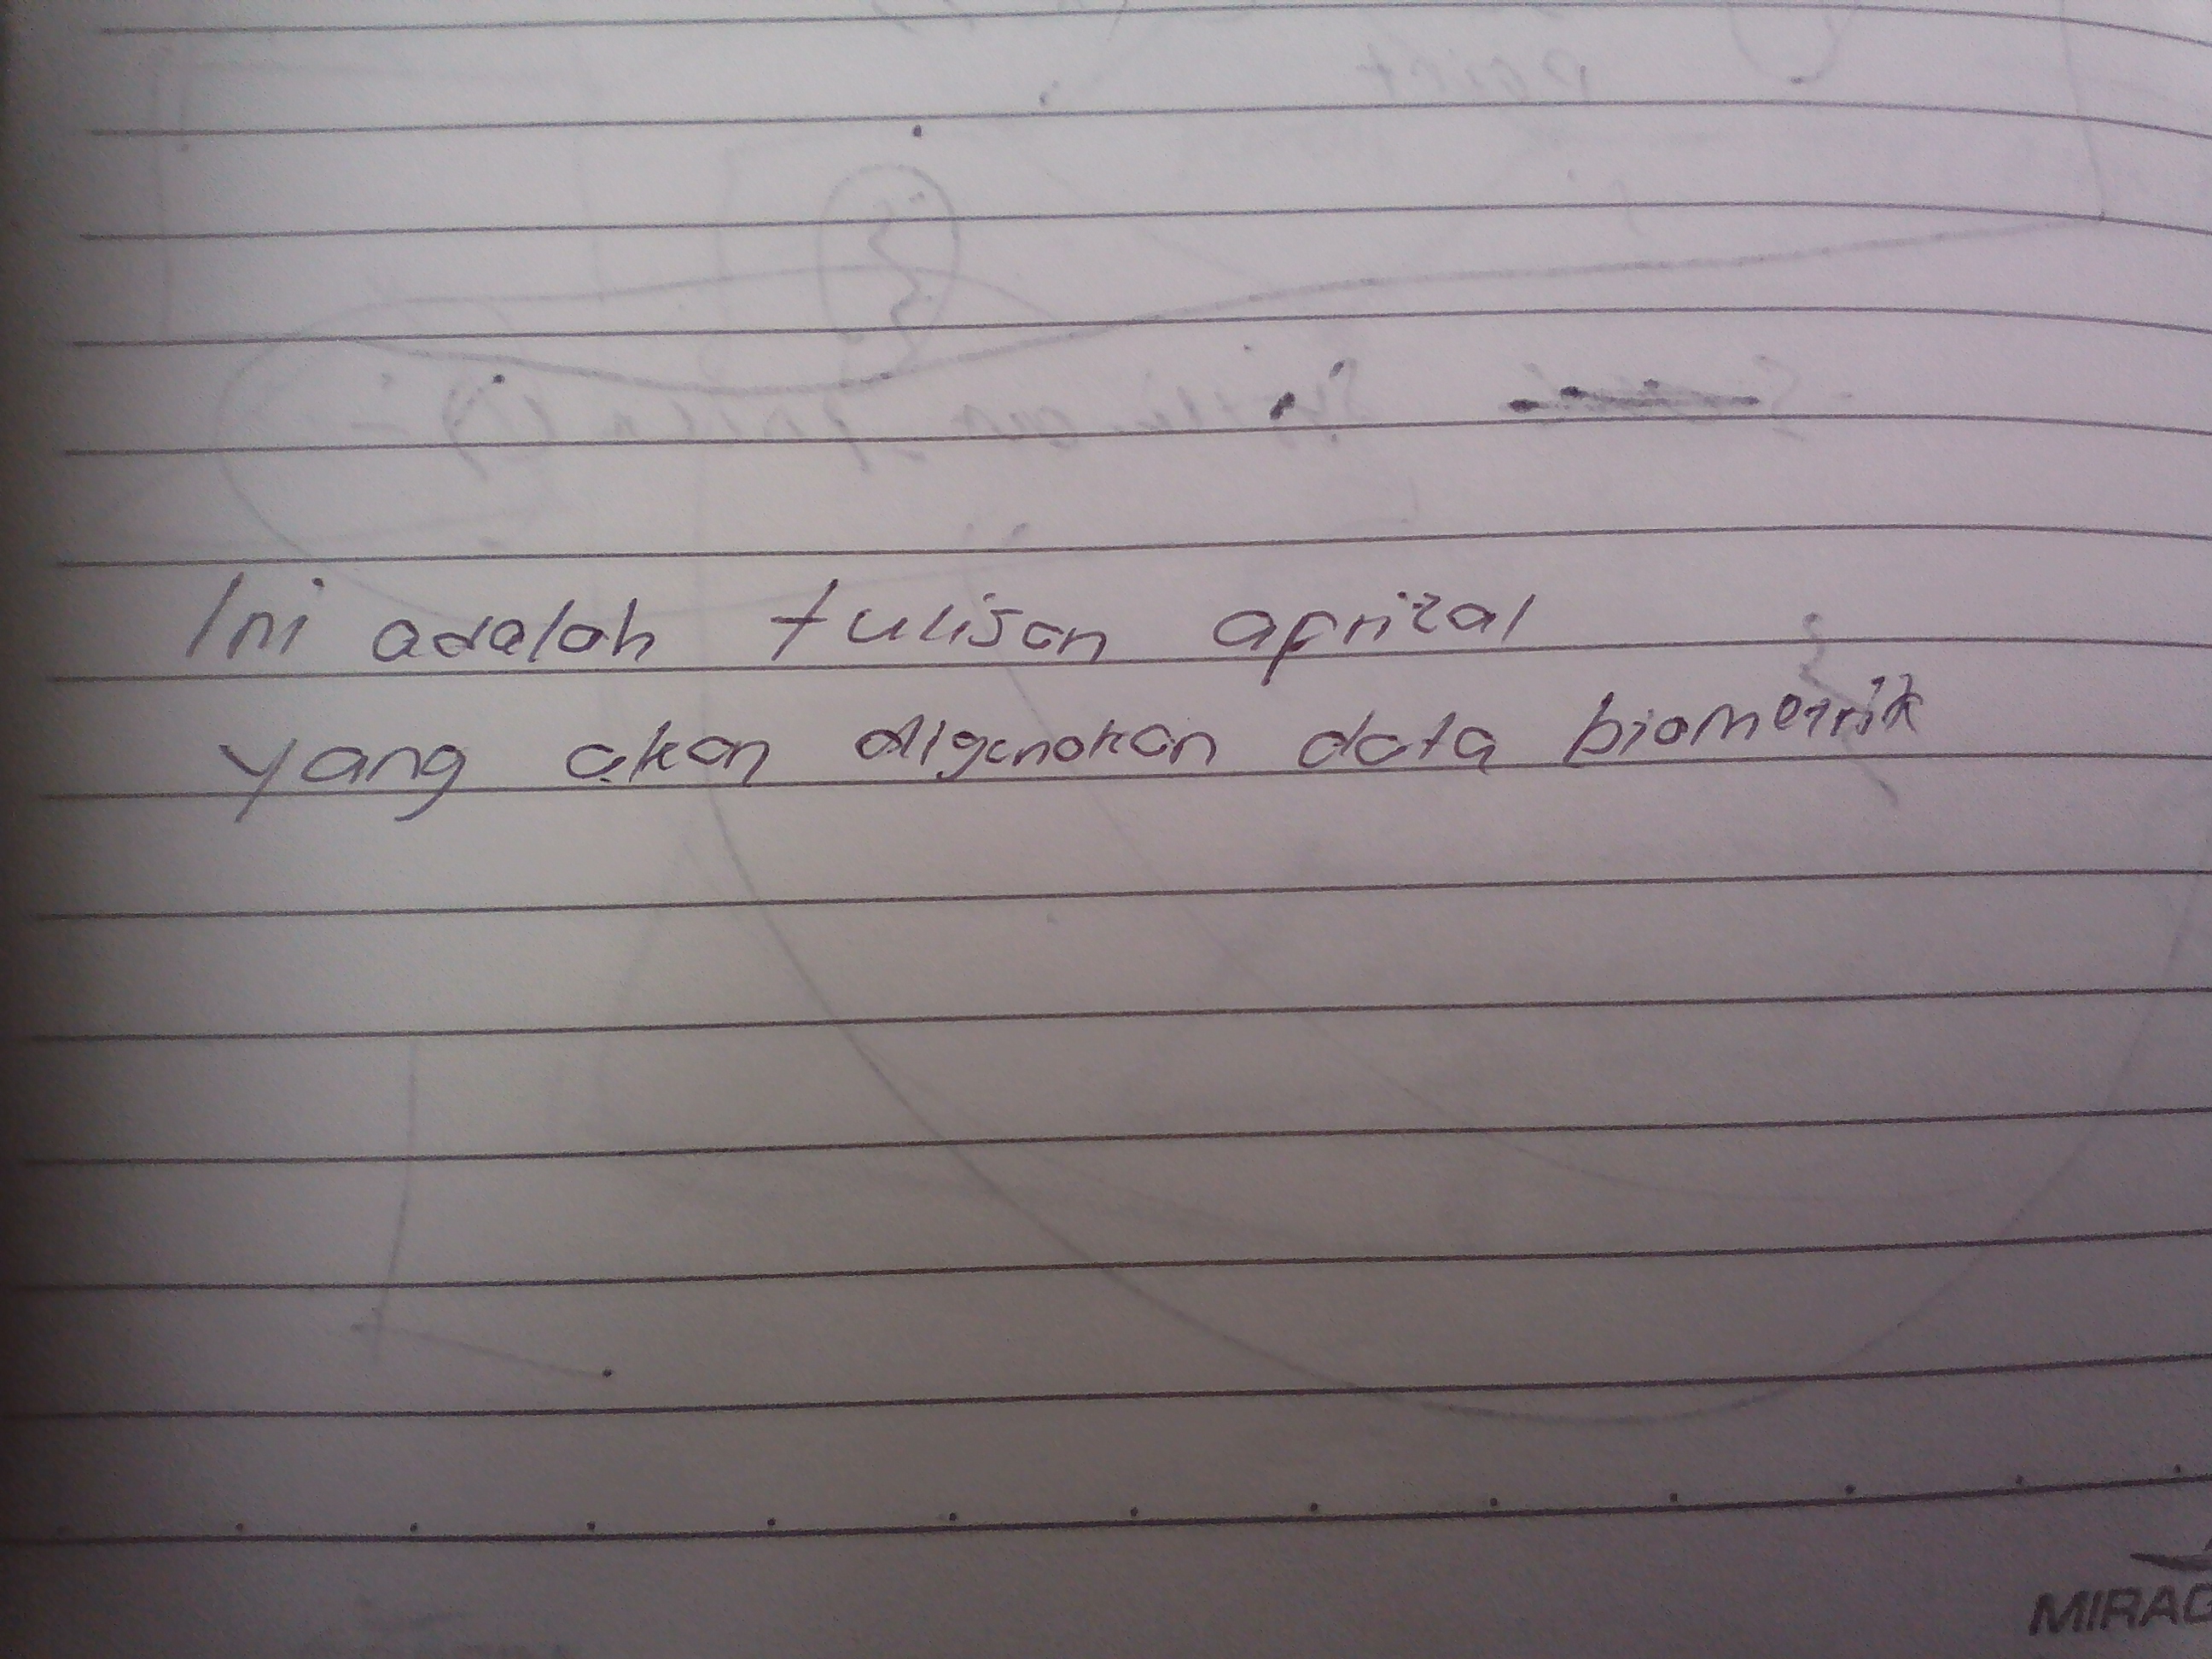 Ini adalah tulisan aprizal
yang akan digunakan data biometrik
MIRAG